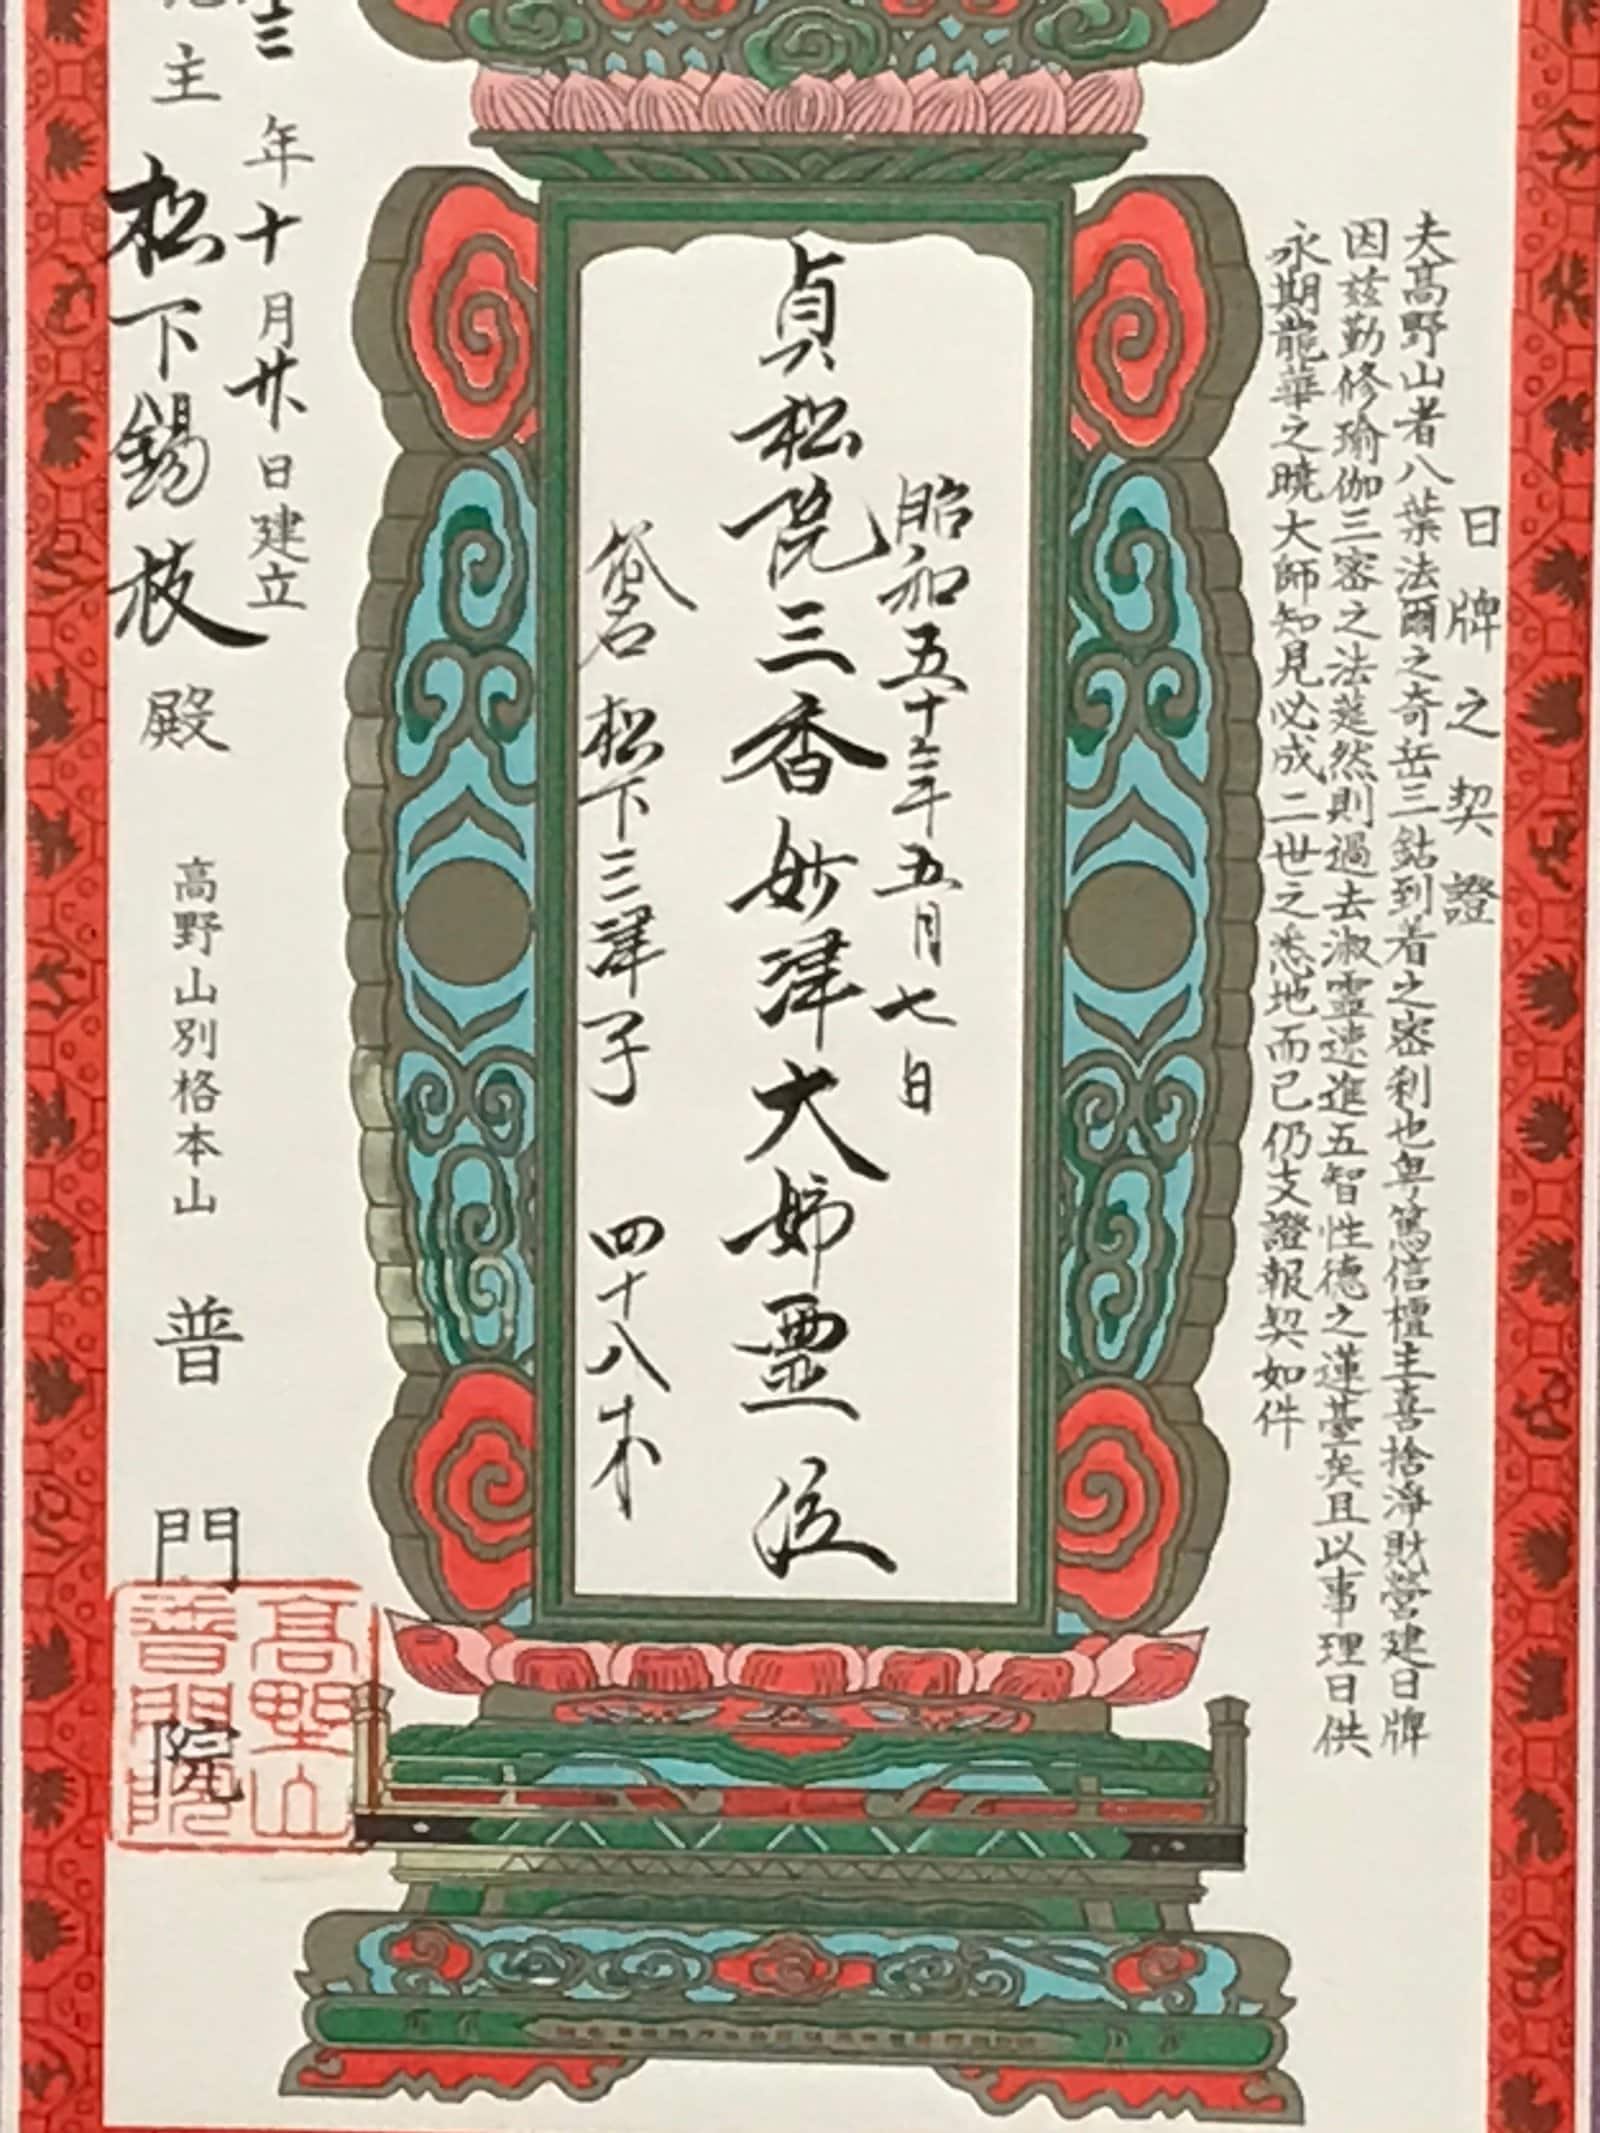 日牌之契證
夫高野山者八葉法爾之奇岳三鈷到着之密刹也粤篤信檀主喜捨淨財營建日牌
因茲勤修瑜伽三密之法莚然則過去淑靈速進五智性德之蓮臺矣且以事理日供
永期龍華之曉大師知見必成二世之悉地而已仍支證報契如件
昭和五十三年五月七日
貞松院三香妙津大姉霊位
俗名 松下三津子 四十八才
年十月廿日建立
主 松下錫枝 殿
高野山別格本山 普門院
高野山
普門院